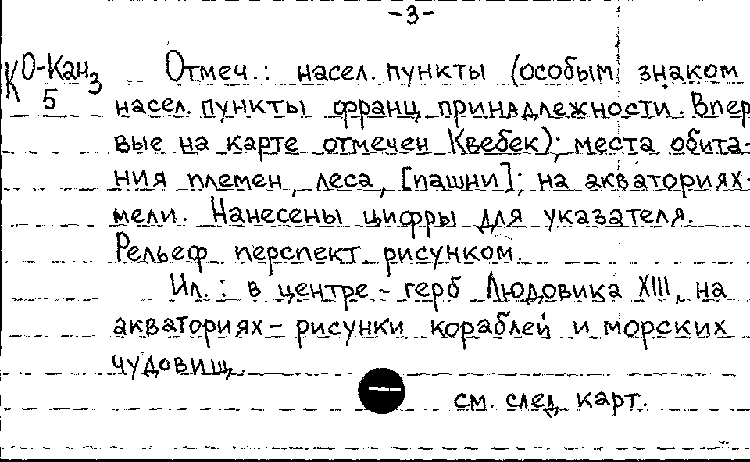 -3-
КО-Кан3 Отмеч.: насел. пункты (особым знаком
5 насел. пункты франц. принадлежности. Впер
вые на карте отмечен Квебек); места обита-
ния племен, леса, [пашни]; на акваториях-
мели. Нанесены цифры для указателя.
Рельеф перспект. рисунком.
Ил.: в центре - герб Людовика XIII, на
акваториях - рисунки кораблей и морских
чудовищ.
см. след. карт.